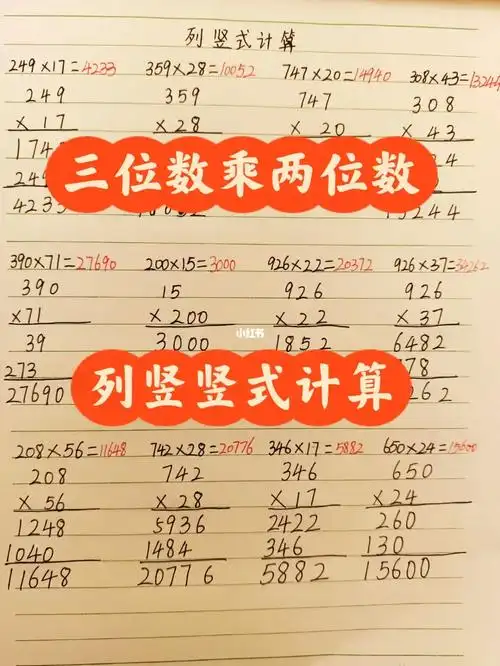 列竖式计算
249×17=4233 359×28=10052 747×20=14940 308×43=13244
249 359 747 308
×17 ×28 ×20 ×43
三位数乘两位数
4233 13244
390×71=27690 200×15=3000 926×22=20372 926×37=34262
390 15 926 926
×71 ×200 ×22 ×37
39 3000 1852 6482
小红书
273
27690
列竖竖式计算
208×56=11648 742×28=20776 346×17=5882 650×24=15600
208 742 346 650
×56 ×28 ×17 ×24
1248 5936 2422 260
1040 1484 346 130
11648 20776 5882 15600